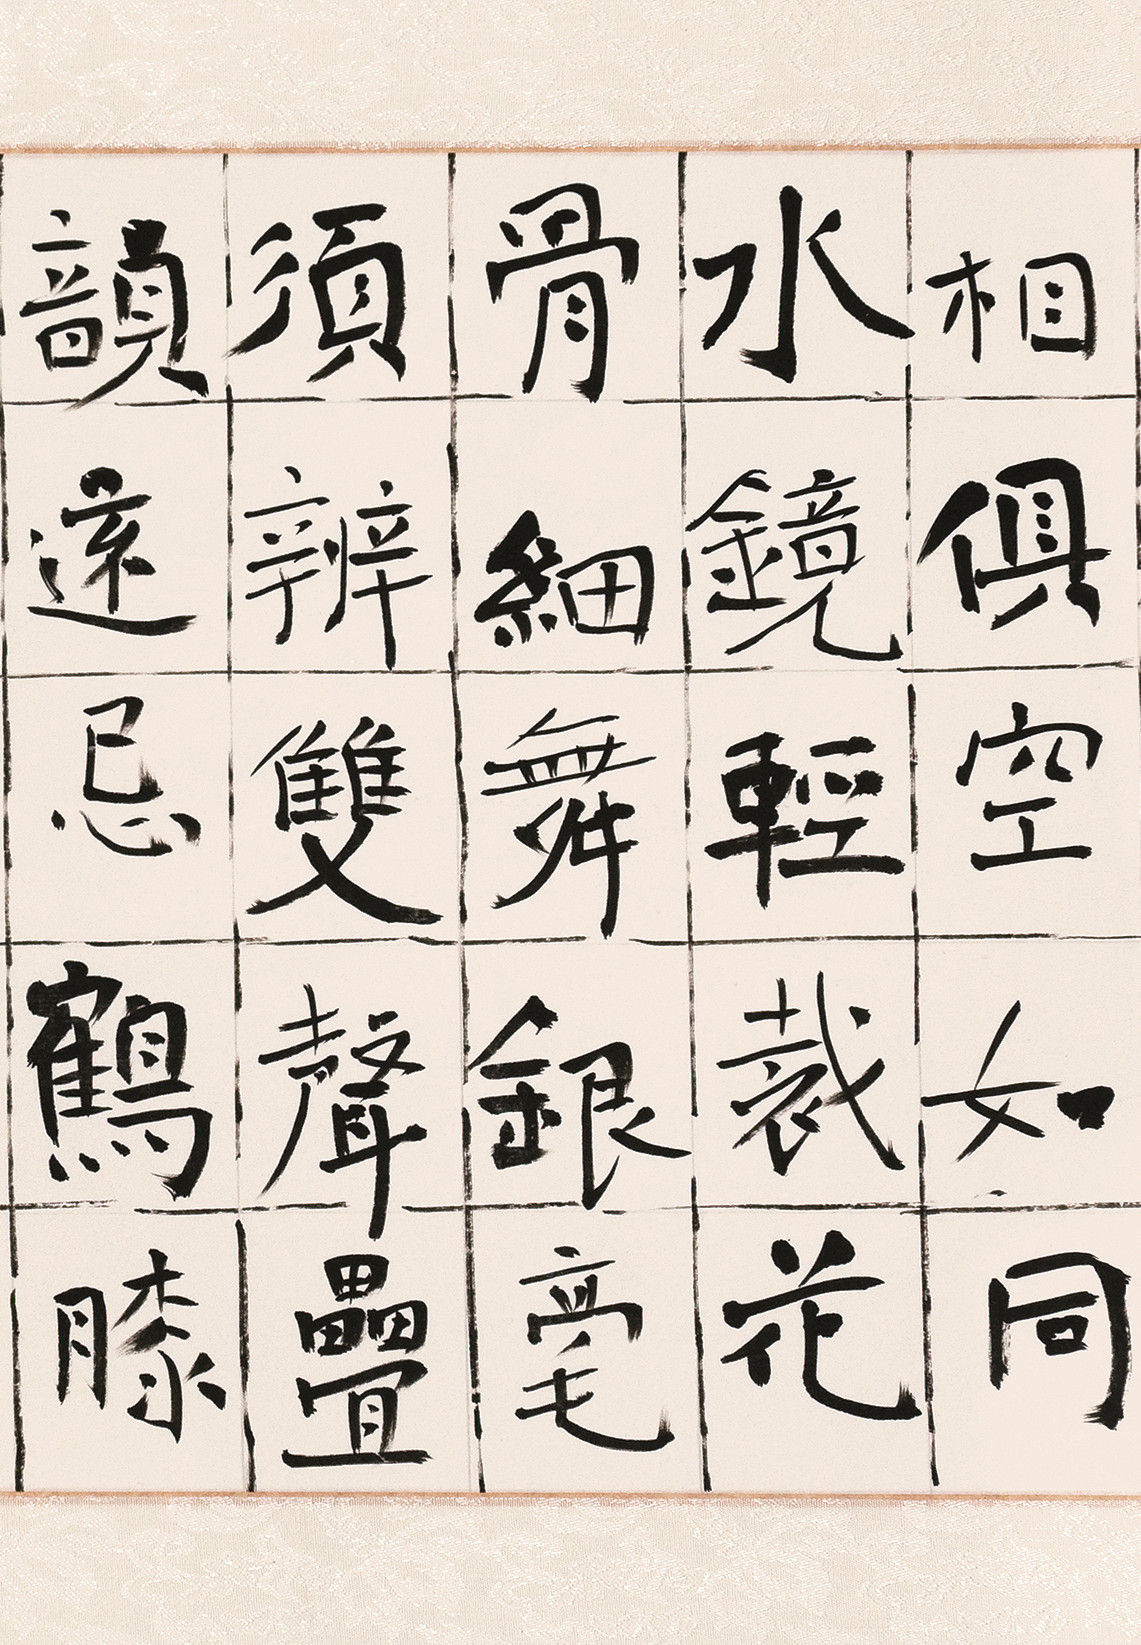 相俱空如同
水鏡輕裁花
骨細舞銀毫
須辨雙聲疊
韻遠忌鶴膝